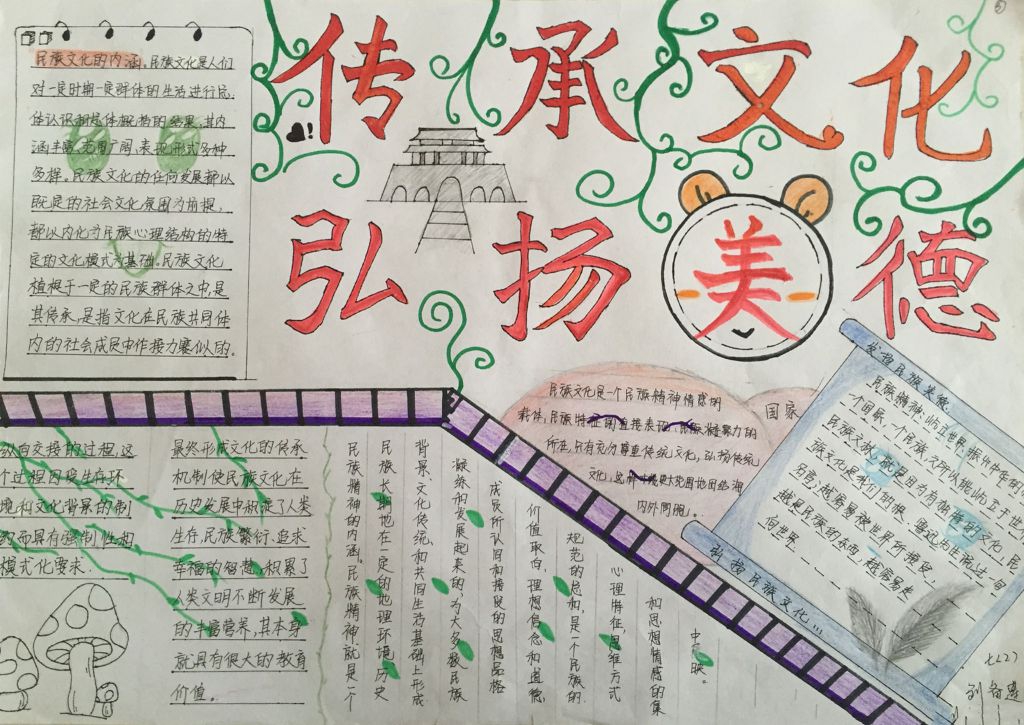 传承文化
弘扬美德
民族文化的内涵。民族文化是人们
对一定时期一定群体的生活进行总
体认识和总体概括的结果,其内
涵丰富,范围广阔,表现形式多种
多样。民族文化的任何发展都以
既定的社会文化氛围为前提,
都以内化于民族心理结构的特
定的文化模式为基础。民族文化
植根于一定的民族群体之中,是
其传承,是指文化在民族共同体
内的社会成员中作接力赛似的。
纵向交接的过程,这
个过程因受生存环
境和文化背景的制
约而具有强制性和
模式化要求.
最终形成文化的传承
机制使民族文化在
历史发展中积淀了人类
生存,民族繁衍.追求
幸福的智慧.积累了
人类文明不断发展
的丰富营养,其本身
就具有很大的教育
价值。
民族精神的内涵。民族精神就是一个
民族长期地在一定的地理环境,历史
背景,文化传统,和共同生活基础上形成
凝练和发展起来的,为大多数民族
成员所认同和接受的思想品格
价值取向,理想信念和道德,
规范的总和,是一个民族的.
心理特征思维方式
和思想情感的集
中反映。
民族文化是一个民族精神情感的
载体,民族特征的直接表证,民族凝聚力的
所在,只有充分尊重传统文化,弘扬传统
文化,这样才能更大范围地团结海
内外同胞。
国家
发扬民族美德
民族精神:屹立世界,振兴中华的
一个国家,一个民族之所以能屹立于世
民族之林,就是因为有独特的文化,民
族文化是我们的根、雷达为生流过一句
名言;越容易被世界所接受,
越是民族的东西,越容易走
向世界.
弘扬民族文化...
七(2)